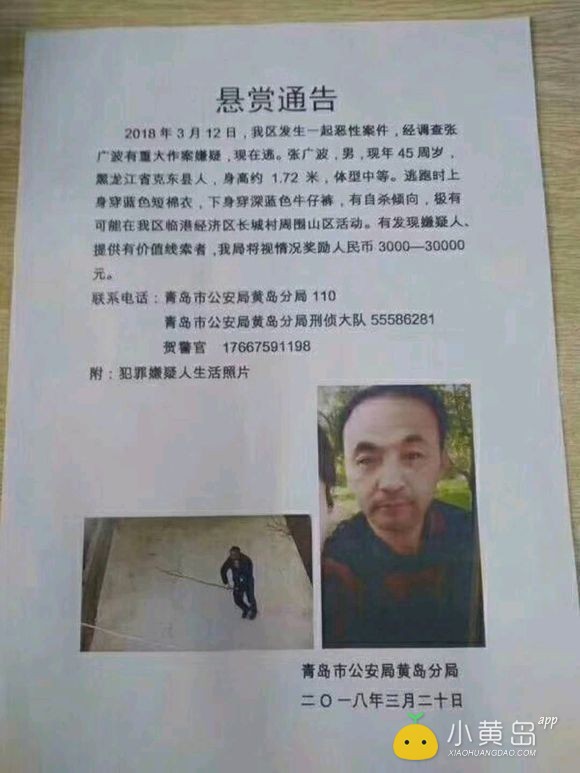 悬赏通告
2018年3月12日，我区发生一起恶性案件，经调查张
广波有重大作案嫌疑，现在逃。张广波，男，现年45周岁，
黑龙江省克东县人，身高约1.72米，体型中等。逃跑时上
身穿蓝色短棉衣，下身穿深蓝色牛仔裤，有自杀倾向，极有
可能在我区临港经济区长城村周围山区活动。有发现嫌疑人、
提供有价值线索者，我局将视情况奖励人民币3000—30000
元。
联系电话：青岛市公安局黄岛分局110
青岛市公安局黄岛分局刑侦大队55586281
贺警官 17667591198
附：犯罪嫌疑人生活照片
青岛市公安局黄岛分局
二〇一八年三月二十日
小黄岛app
XIAOHUANGDAO.COM